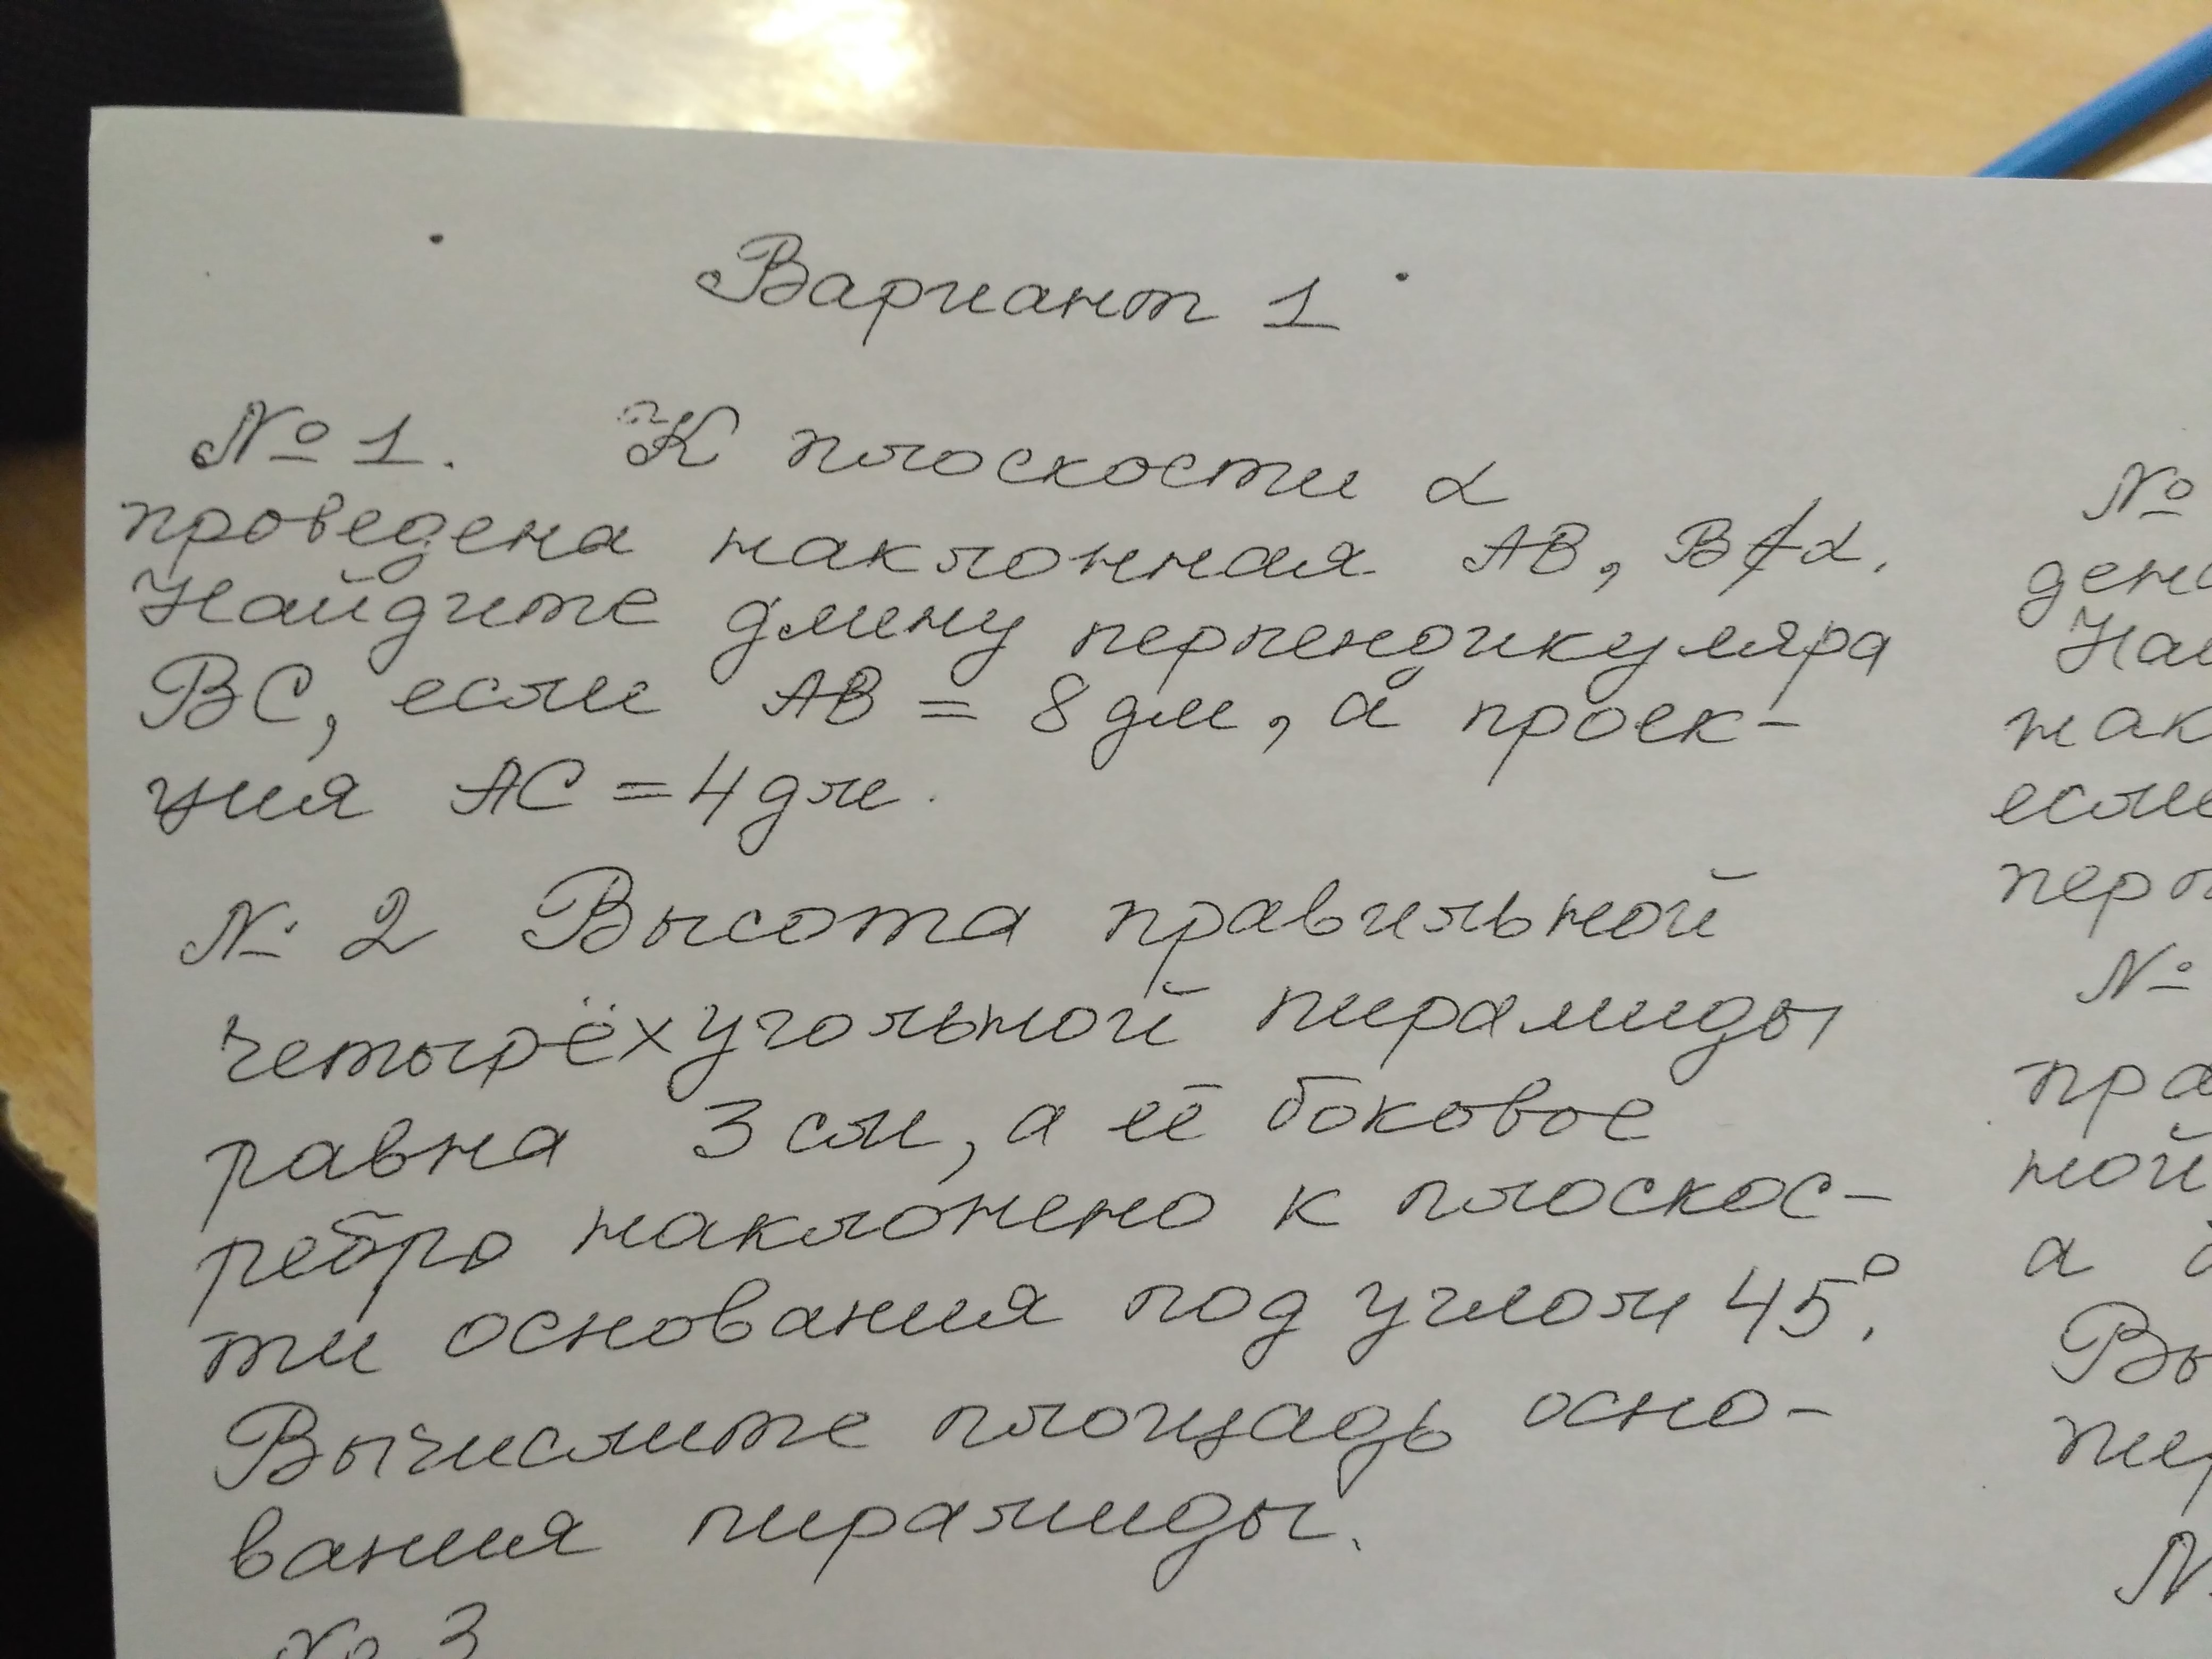 Вариант 1
№ 1. К плоскости α
проведена наклонная АВ, В∉α.
Найдите длину перпендикуляра
ВС, если АВ = 8 дм, а проек-
ция АС = 4 дм.
№ 2 Высота правильной
четырёхугольной пирамиды
равна 3 см, а её боковое
ребро наклонено к плоскос-
ти основания под углом 45°.
Вычислите площадь осно-
вания пирамиды.
№ 3
№
№
пра
ной
а